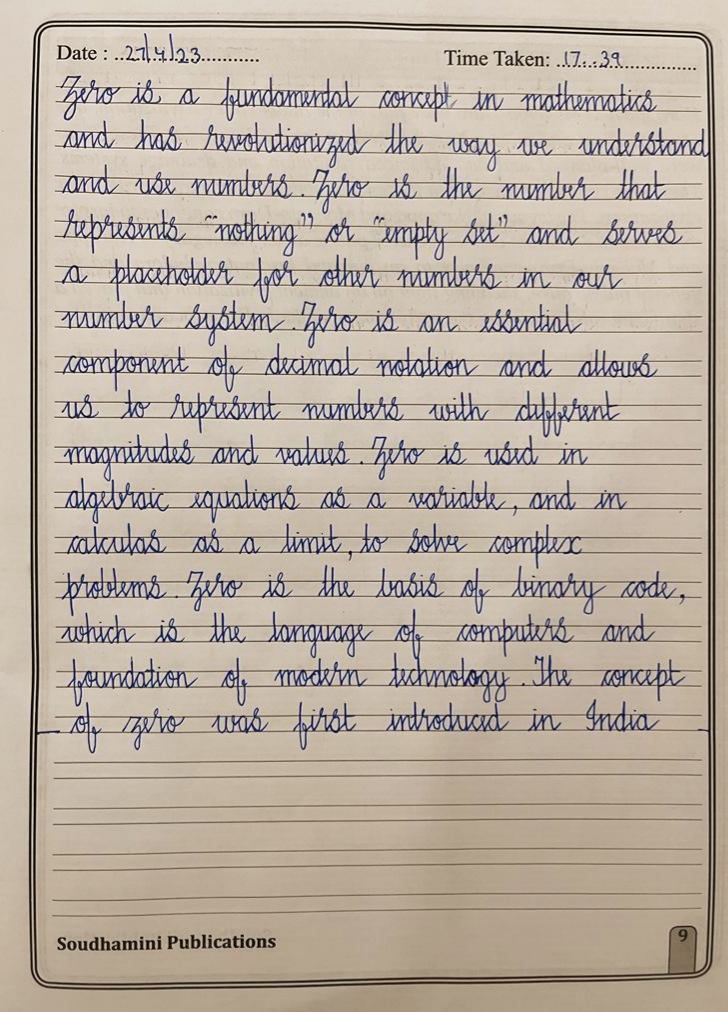 Date : ..27/4/23...........
Time Taken: ..17..:39...............
Zero is a fundamental concept in mathematics
and has revolutionized the way we understand
and use numbers. Zero is the number that
represents "nothing" or "empty set" and serves
a placeholder for other numbers in our
number system. Zero is an essential
component of decimal notation and allows
us to represent numbers with different
magnitudes and values. Zero is used in
algebraic equations as a variable, and in
calculas as a limit, to solve complex
problems. Zero is the basis of binary code,
which is the language of computers and
foundation of modern technology. The concept
of zero was first introduced in India
Soudhamini Publications
9